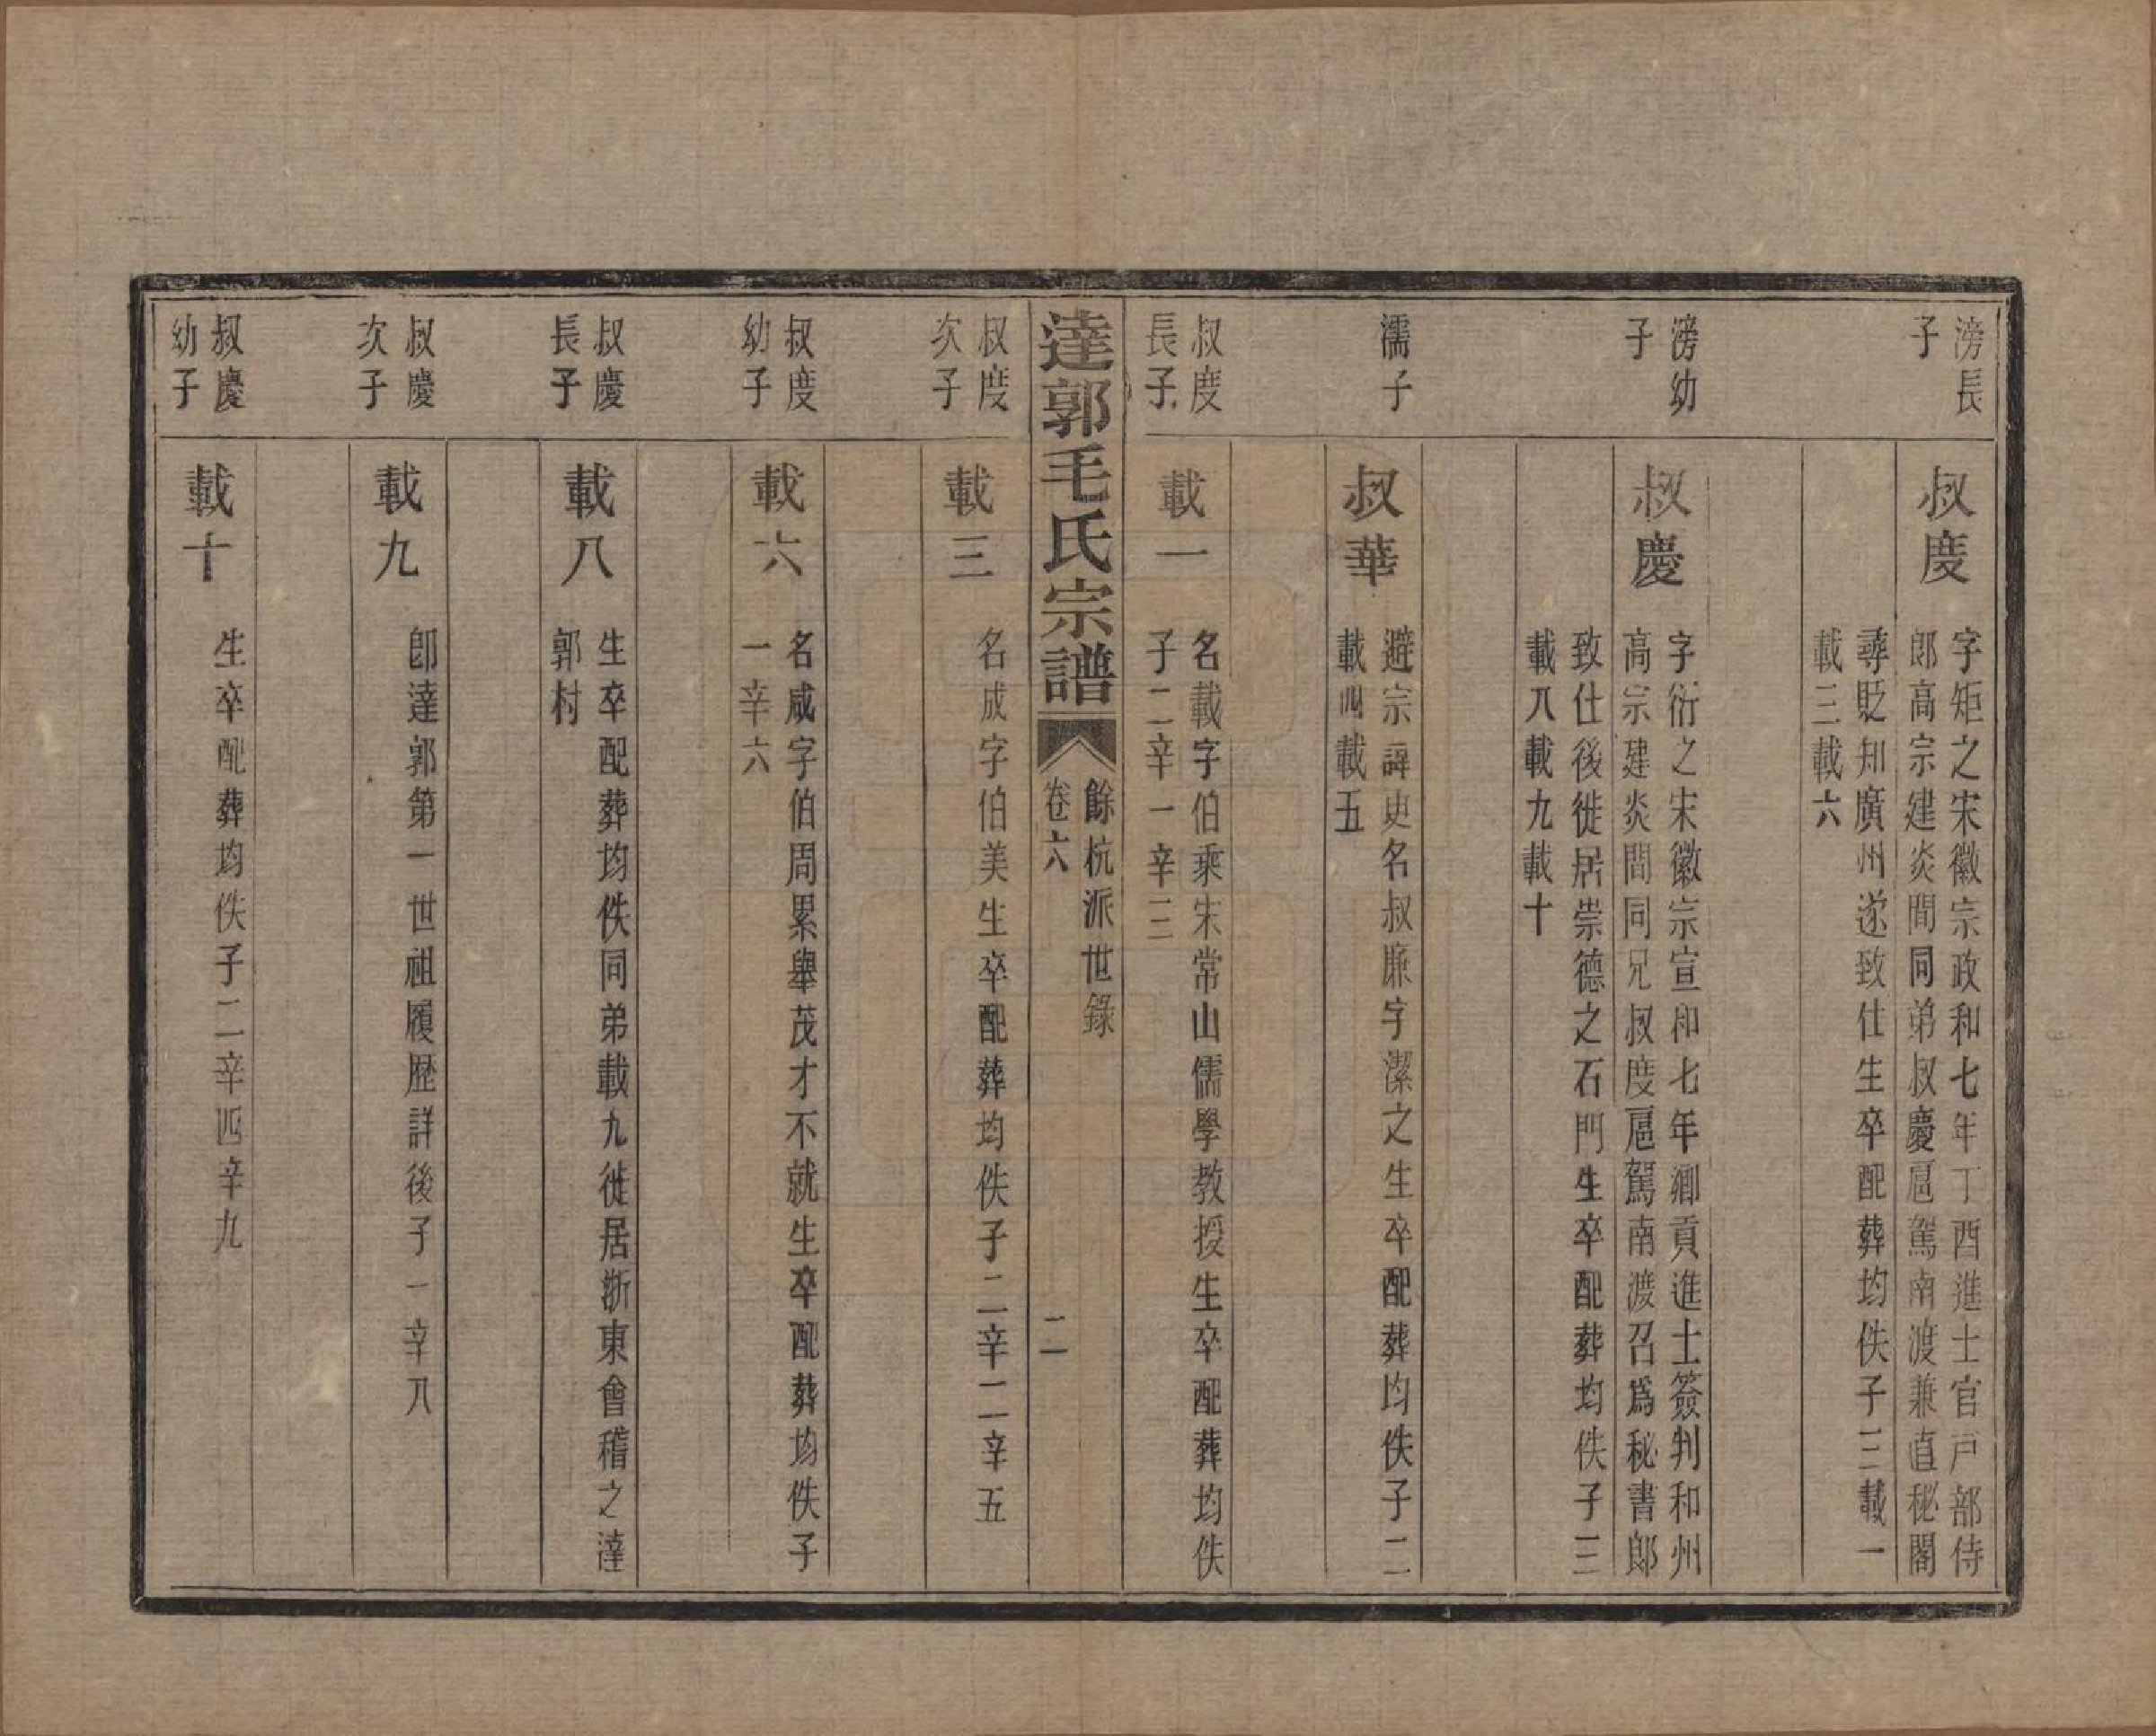 滂長
子
叔度
字矩之宋徽宗政和七年丁酉進士官戸部侍
郎高宗建炎間同弟叔慶扈駕南渡兼直秘閣
尋貶知廣州遂致仕生卒配葬均佚子三載一
載三載六
滂幼
子
叔慶
字衍之宋徽宗宣和七年鄉貢進士簽判和州
高宗建炎間同兄叔度扈駕南渡召爲秘書郎
致仕後徙居崇德之石門生卒配葬均佚子三
載八載九載十
濡子
叔華
避宗諱更名叔廉字潔之生卒配葬均佚子二
載四載五
叔度
長子
載一
名載字伯乘宋常山儒學教授生卒配葬均佚
子二辛一辛三
達郭毛氏宗譜
餘杭派世錄
卷六
二
叔度
次子
載三
名成字伯美生卒配葬均佚子二辛二辛五
叔度
幼子
載六
名咸字伯周累舉茂才不就生卒配葬均佚子
一辛六
叔慶
長子
載八
生卒配葬均佚同弟載九徙居浙東會稽之達
郭村
叔慶
次子
載九
卽達郭第一世祖履歷詳後子一辛八
叔慶
幼子
載十
生卒配葬均佚子二辛四辛九